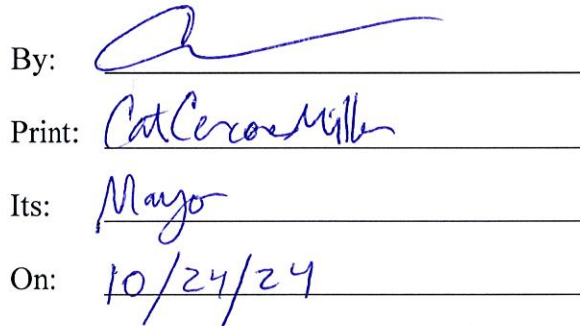 By:
Print: Cat Cercone Miller
Its: Mayor
On: 10/24/24